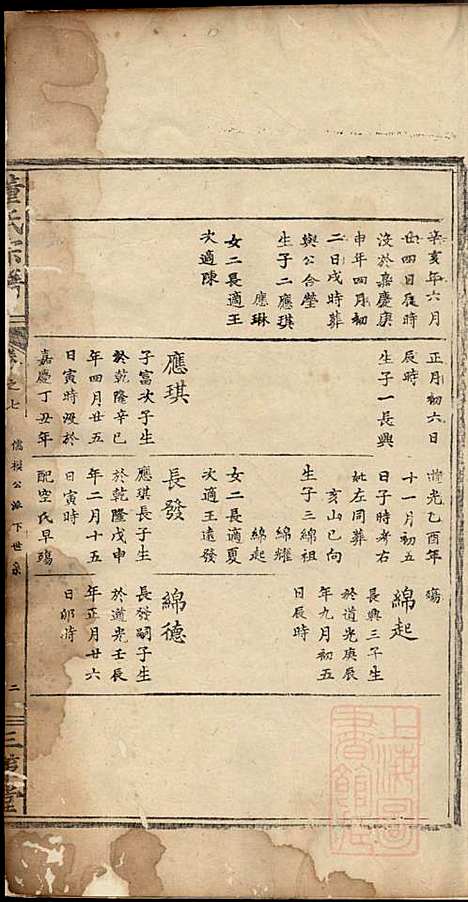 辛亥年六月
廿四日辰時
沒於嘉慶庚
申年四月初
二日戌時葬
與公合塋
生子二應琪
應琳
女二長適王
次適陳
正月初六日
辰時
生子一長興
應琪
子富次子生
於乾隆辛巳
年四月廿五
日寅時沒於
嘉慶丁丑年
道光乙酉年
十一月初五
日子時考右
妣左同葬
亥山巳向
生子三綿祖
綿耀
綿起
女二長適夏
次適王遠發
長發
應琪長子生
於乾隆戊申
年二月十五
日寅時
配空氏早殤
殤
綿起
長興三子生
於道光庚辰
年九月初五
日辰時
綿德
長發嗣子生
於道光壬辰
年正月廿六
日卯時
董氏宗譜
卷之七
儒模公派下世系
二
三策堂
上海圖書館藏